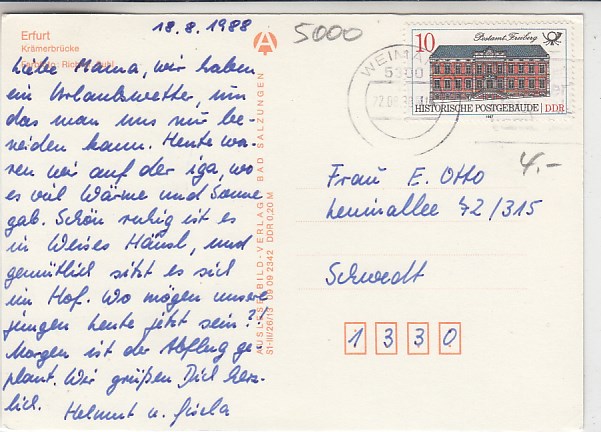 18.8.1988
5000
Erfurt
Krämerbrücke
Liebe Mama, wir haben
ein Urlaubswetter, um
das man uns nur be-
neiden kann. Heute wa-
ren wir auf der iga, wo
es viel Wärme und Sonne
gab. Schön ruhig ist es
in Häusl, und
gemütlich sitzt es sich
im Hof. Wo mögen unsere
Jungen heute jetzt sein?
Morgen ist der Abflug ge-
plant. Wir grüßen Dich herz-
lich. Helmut u. Gisela
AUSLESE-BILD-VERLAG BAD SALZUNGEN
51-III/26/13 09 09 2342 DDR 0,20 M
WEIMA
5300
10
Postamt Freiberg
HISTORISCHE POSTGEBÄUDE DDR
1987
4,-
Frau E. Otto
Leninallee 72/315
Schwedt
1 3 3 0